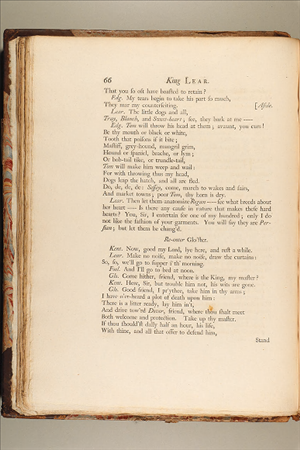 66 King LEAR.
That you so oft have boasted to retain?
Edg. My tears begin to take his part so much,
They mar my counterfeiting. [Aside.
Lear. The little dogs and all,
Tray, Blanch, and Sweet-heart; see, they bark at me ——
Edg. Tom will throw his head at them; avaunt, you curs!
Be thy mouth or black or white,
Tooth that poisons if it bite;
Mastiff, grey-hound, mungrel grim,
Hound or spaniel, brache, or lym;
Or bob-tail tike, or trundle-tail,
Tom will make him weep and wail:
For with throwing thus my head,
Dogs leap the hatch, and all are fled.
Do, de, de, de: Sessey, come, march to wakes and fairs,
And market towns; poor Tom, thy horn is dry.
Lear. Then let them anatomize Regan —— see what breeds about
her heart — Is there any cause in nature that makes these hard
hearts? You, Sir, I entertain for one of my hundred; only I do
not like the fashion of your garments. You will say they are Per-
sian; but let them be chang'd.
Re-enter Glo'ster.
Kent. Now, good my Lord, lye here, and rest a while.
Lear. Make no noise, make no noise, draw the curtains:
So, so, we'll go to supper i' th' morning.
Fool. And I'll go to bed at noon.
Glo. Come hither, friend, where is the King, my master?
Kent. Here, Sir, but trouble him not, his wits are gone.
Glo. Good friend, I pr'ythee, take him in thy arms;
I have o'er-heard a plot of death upon him:
There is a litter ready, lay him in't,
And drive tow'rd Dover, friend, where thou shalt meet
Both welcome and protection. Take up thy master.
If thou should'st dally half an hour, his life,
With thine, and all that offer to defend him,
Stand